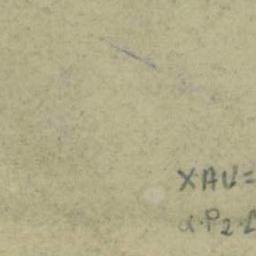 XAU=
α.P2.L